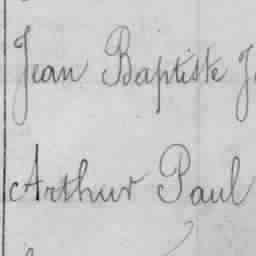 Jean Baptiste J
Arthur Paul